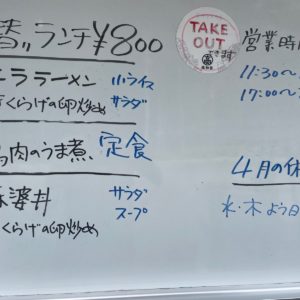 替" ランチ ¥800
ニラ ラーメン 小ライス
きくらげの卵炒め サラダ
肉のうま煮 定食
麻婆丼 サラダ
くらげの卵炒め スープ
TAKE
OUT
できます
営業時
11:30〜
17:00〜
4月の休
水・木よう日